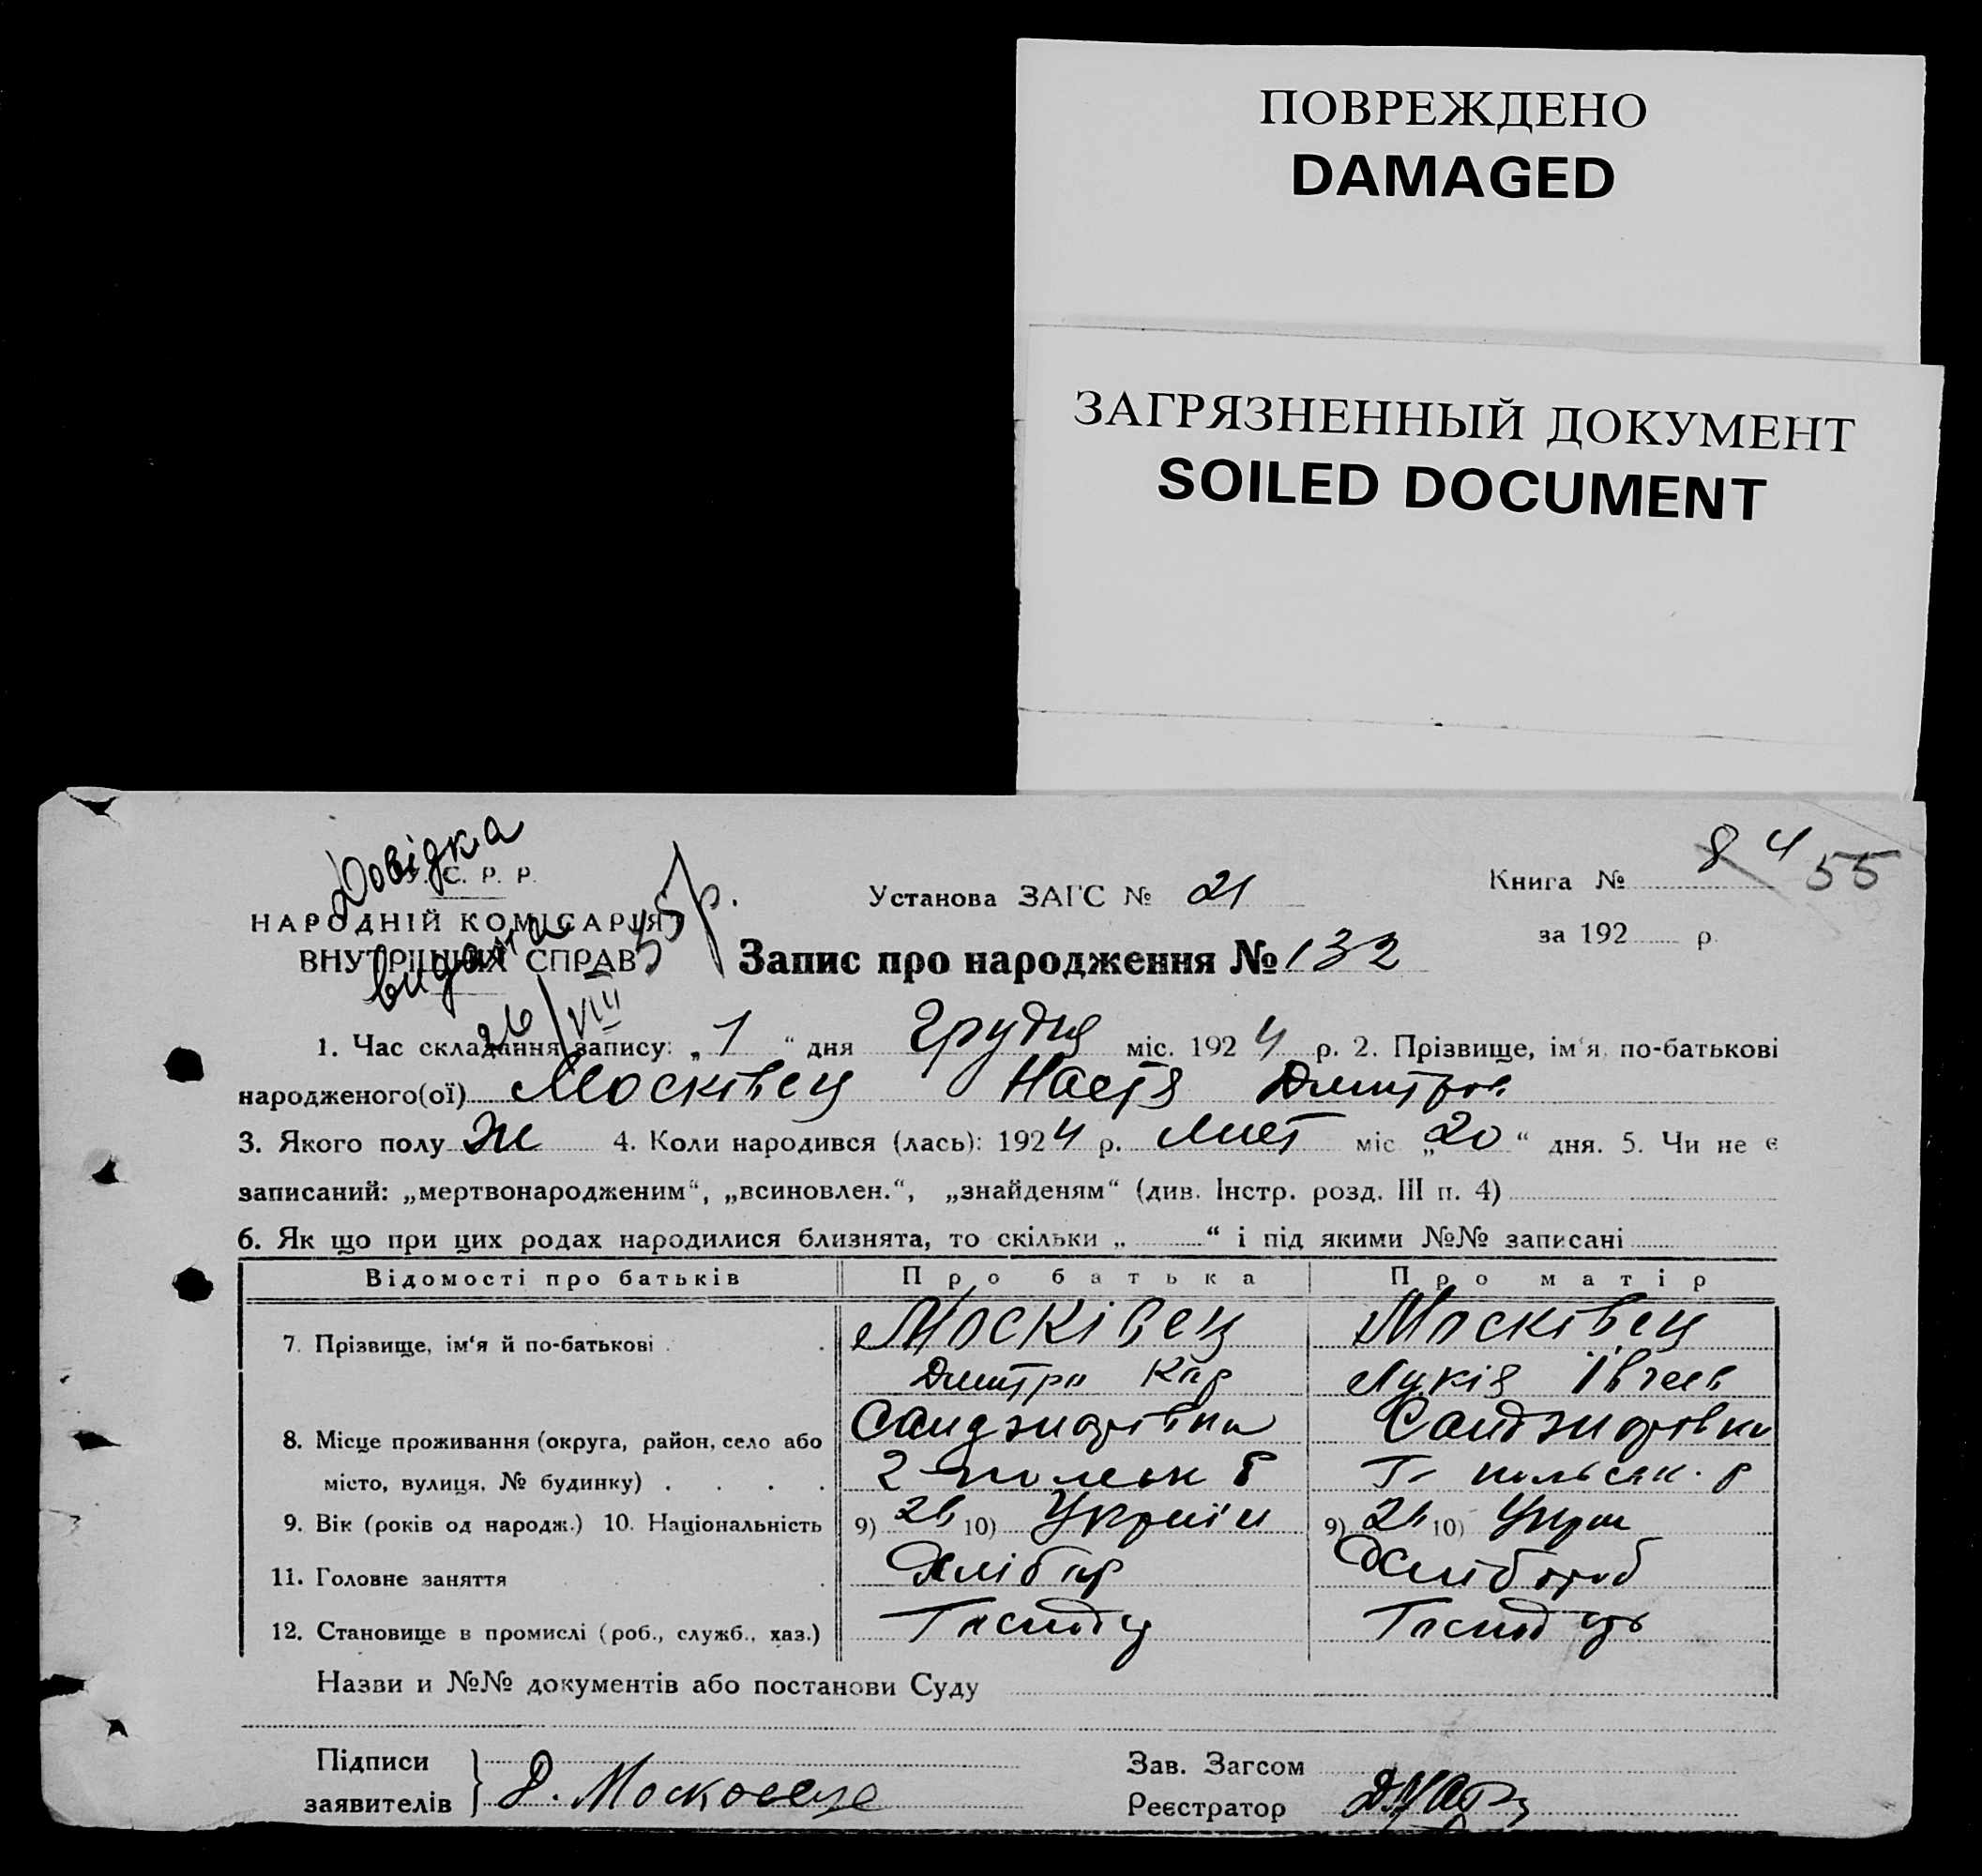 ПОВРЕЖДЕНО
DAMAGED
ЗАГРЯЗНЕННЫЙ ДОКУМЕНТ
SOILED DOCUMENT
Довідка
видана
26/VIII 55р.
С. Р. Р.
НАРОДНІЙ КОМІСАРІЯТ
ВНУТРІШНІХ СПРАВ
Установа ЗАГС № 21
Книга № 8 4 55
за 192 р.
Запис про народження № 132
1. Час складання запису: „ 1 “ дня Грудня міс. 192 4 р. 2. Прізвище, ім'я, по-батькові
народженого(ої) Москівец Настя Дмитров
3. Якого полу Ж 4. Коли народився (лась): 192 4 р. Лист міс „ 20 “ дня. 5. Чи не є
записаний: „мертвонародженим“, „всиновлен.“, „знайденям“ (див. Інстр. розд. III п. 4)
6. Як що при цих родах народилися близнята, то скільки „ “ і під якими №№ записані
Відомості про батьків Про батька Про матір
7. Прізвище, ім'я й по-батькові Москівец Москівец
Дмитро Кар Лукія
8. Місце проживання (округа, район, село або
місто, вулиця, № будинку)
9. Вік (років од народж.) 10. Національність 9) 26 10) Україн 9) 26 10) Укра
11. Головне заняття Хлібор Хлібороб
12. Становище в промислі (роб., служб., хаз.)
Назви и №№ документів або постанови Суду
Підписи
заявителів Д.
Зав. Загсом
Реєстратор